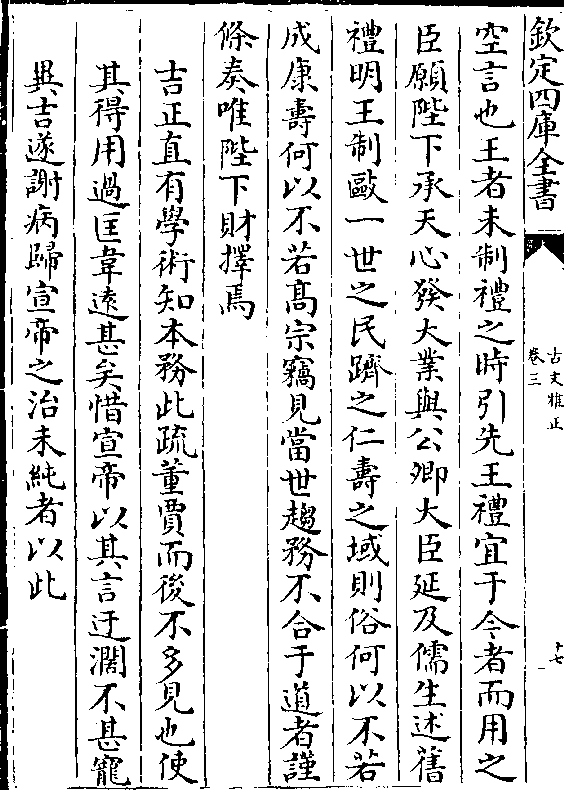 欽定四庫全書
古文雅正
卷三
十七
空言也王者未制禮之時引先王禮宜于今者而用之
臣願陛下承天心發大業與公卿大臣延及儒生述舊
禮明王制歐一世之民躋之仁壽之域則俗何以不若
成康壽何以不若髙宗竊見當世趨務不合于道者謹
條奏唯陛下財擇焉
吉正直有學術知本務此疏董賈而後不多見也使
其得用過匡韋逺甚矣惜宣帝以其言迂濶不甚寵
異吉遂謝病歸宣帝之治未純者以此